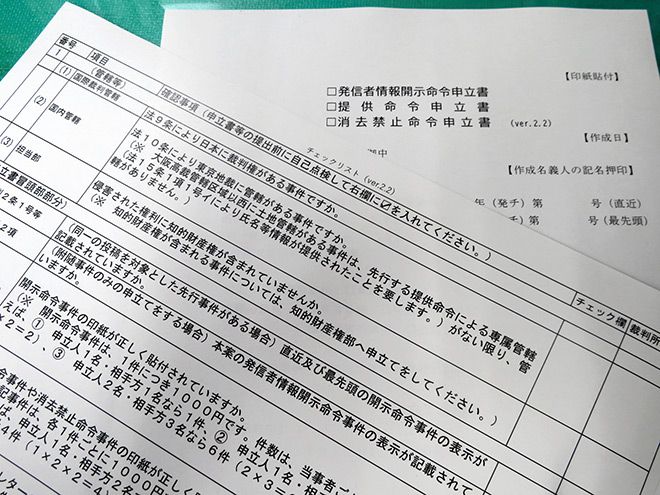 【印紙貼付】
□発信者情報開示命令申立書
□提供命令申立書
□消去禁止命令申立書 (ver.2.2)
【作成日】
御中
【作成名義人の記名押印】
年(発チ)第 号(直近)
号(最先頭)
チェックリスト(ver2.2)
番号 項目 確認事項(申立書等の提出前に自己点検して右欄に☑を入れてください。) チェック欄 裁判所
1 (管轄等)
(1) 国際裁判管轄 法9条により日本に裁判権がある事件ですか。
(2) 国内管轄 法10条により東京地裁に管轄がある事件ですか。
(※ 大阪高裁管轄区域以西に土地管轄がある事件は、先行する提供命令による専属管轄
(法15条1項1号イにより氏名等情報が提供されたことを要します。)がない限り、管
轄がありません。)
(3) 担当部 侵害された権利に知的財産権が含まれていませんか。
(※ 知的財産権が含まれる事件については、知的財産権部へ申立てをしてください。)
立書冒頭部部分)
2条1号等 (同一の投稿を対象とした先行事件がある場合)直近及び最先頭の開示命令事件の表示が
記載されていますか。
2項 (附随事件のみの申立てをする場合)本案の発信者情報開示命令事件の表示が記載されて
いますか。
開示命令事件の印紙が正しく貼付されていますか。
(※ 開示命令事件は、1件につき1000円です。件数は、当事者
えば、① 申立人1名・相手方1名なら1件、② 申立人1名・
×2=2)、③ 申立人2名・相手方3名なら6件(2×3=6
令事件や消去禁止命令事件の印紙が正しく
記事件は、各1件ごとに1000円
ば、申立人1名・相手方2名
4件(1×2×2=4)
レター